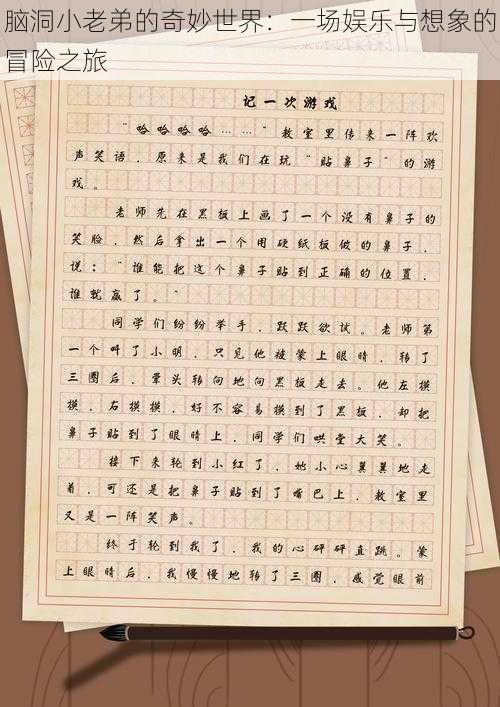 脑洞小老弟的奇妙世界：一场娱乐与想象的
冒险之旅
记一次游戏
“哈哈哈哈……”教室里传来一阵欢
声笑语，原来是我们在玩“贴鼻子”的游
戏。
老师先在黑板上画了一个没有鼻子的
笑脸，然后拿出一个用硬纸板做的鼻子，
说：“谁能把这个鼻子贴到正确的位置，
谁就赢了。”
同学们纷纷举手，跃跃欲试。老师第
一个叫了小明，只见他被蒙上眼睛，转了
三圈后，晕头转向地向黑板走去。他左摸
摸，右摸摸，好不容易摸到了黑板，却把
鼻子贴到了眼睛上，同学们哄堂大笑。
接下来轮到小红了，她小心翼翼地走
着，可还是把鼻子贴到了嘴巴上，教室里
又是一阵笑声。
终于轮到我了，我的心砰砰直跳。蒙
上眼睛后，我慢慢地转了三圈，感觉眼前